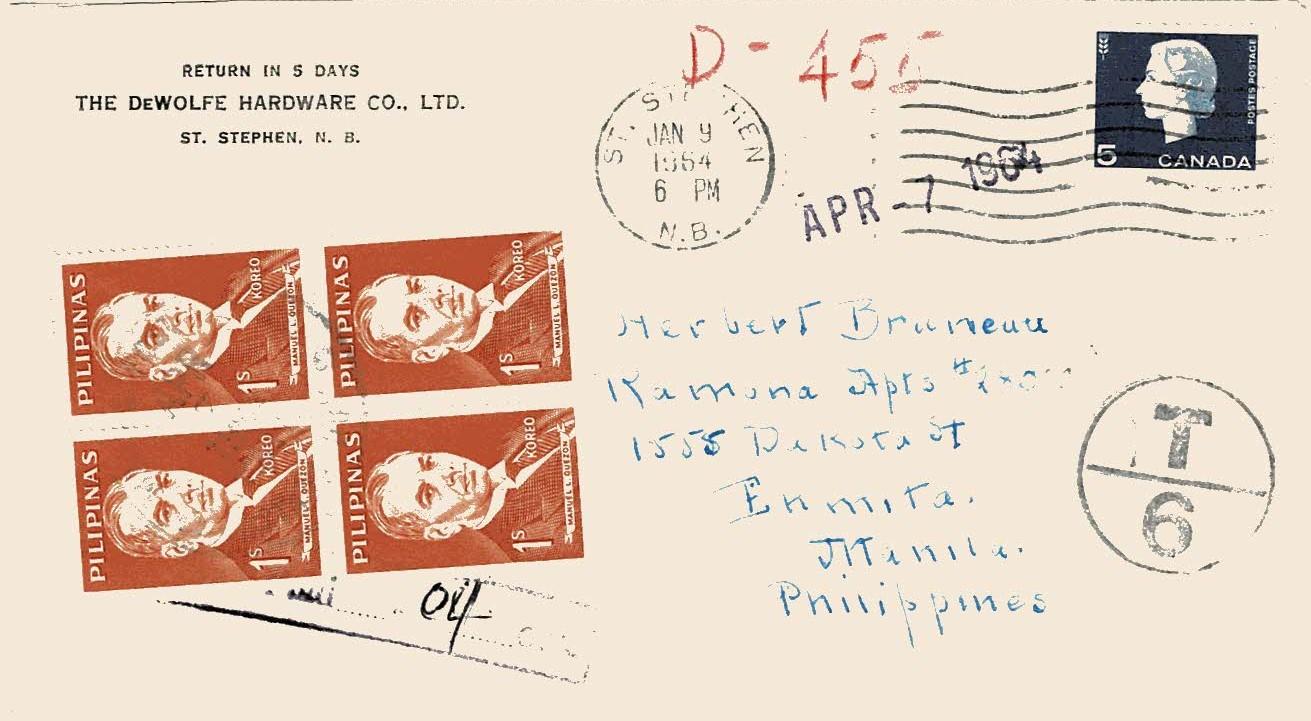 RETURN IN 5 DAYS
THE DeWOLFE HARDWARE CO., LTD.
ST. STEPHEN, N. B.
D - 455
ST. STEPHEN
JAN 9
1964
6 PM
N.B.
APR - 7 1964
POSTES POSTAGE
5 CANADA
PILIPINAS
KOREO
MANUEL L. QUEZON
1s
PILIPINAS
KOREO
MANUEL L. QUEZON
1s
PILIPINAS
KOREO
MANUEL L. QUEZON
1s
PILIPINAS
KOREO
MANUEL L. QUEZON
1s
Herbert Bruneau
Ramona Apts
1555 Dakota St
Ermita.
Manila.
Philippines
T
6
04